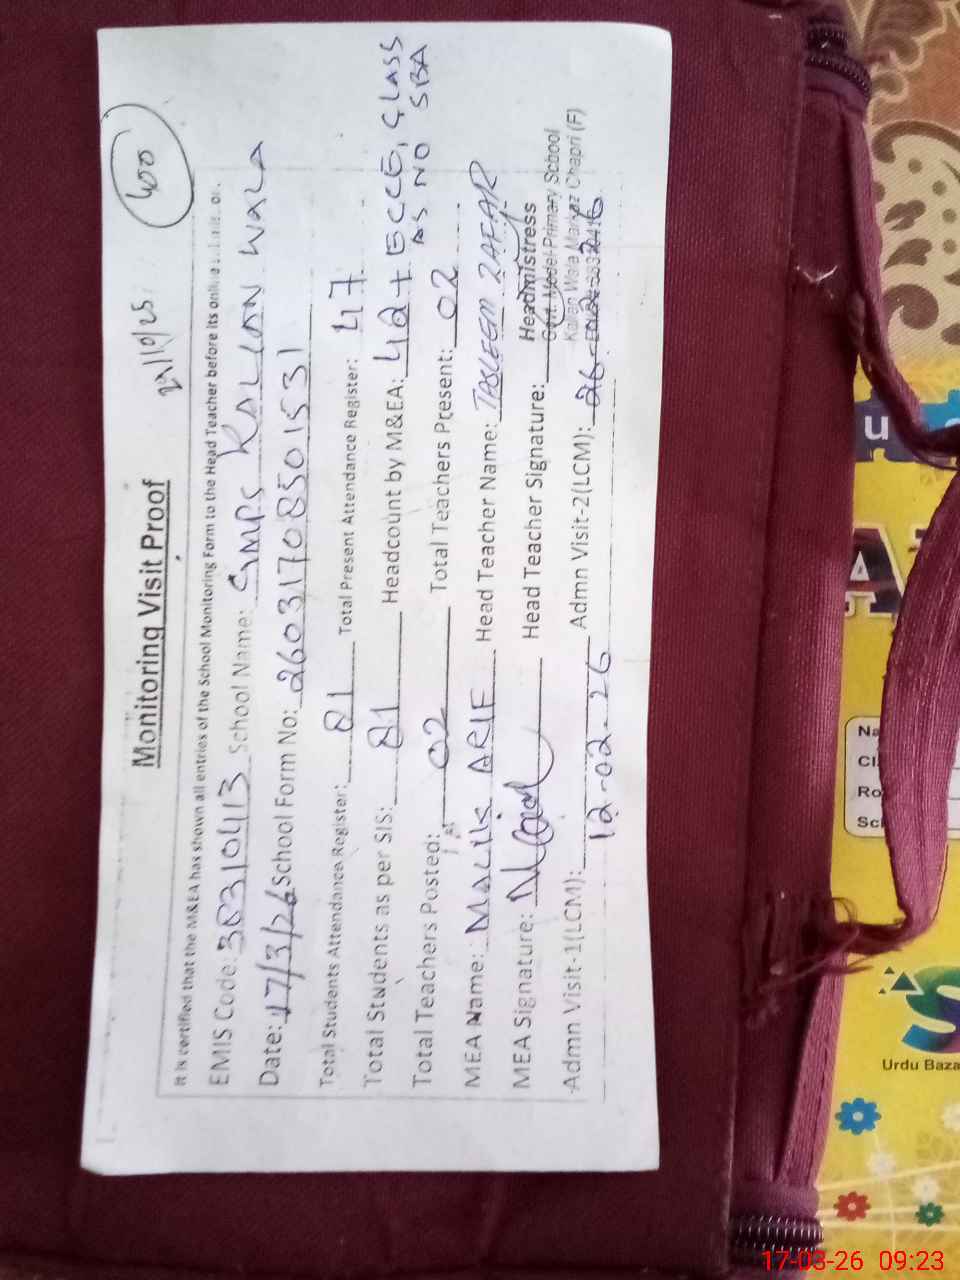 400
29/10/25
Monitoring Visit Proof
It is certified that the M&EA has shown all entries of the School Monitoring Form to the Head Teacher before its online
EMIS Code: 38310413 School Name: GMPS KALLAN WALA
Date: 17/3/26 School Form No: 26031708501531
Total Students Attendance Register: 81 Total Present Attendance Register: 47
Total Students as per SIS: 81 Headcount by M&EA: 42+ ECCE, CLASS
Total Teachers Posted: 02 Total Teachers Present: 02 AS NO SBA
MEA Name: MALIK ARIF Head Teacher Name: TASLEEM ZAFAR
MEA Signature: Head Teacher Signature: Headmistress
Govt. Model Primary School
Kallan Wala Markaz Chapri (F)
Admn Visit-1(LCM): 12-02-26 Admn Visit-2(LCM): 26-
Na
Cl
Ro
Sc
Urdu Baza
17-03-26 09:23